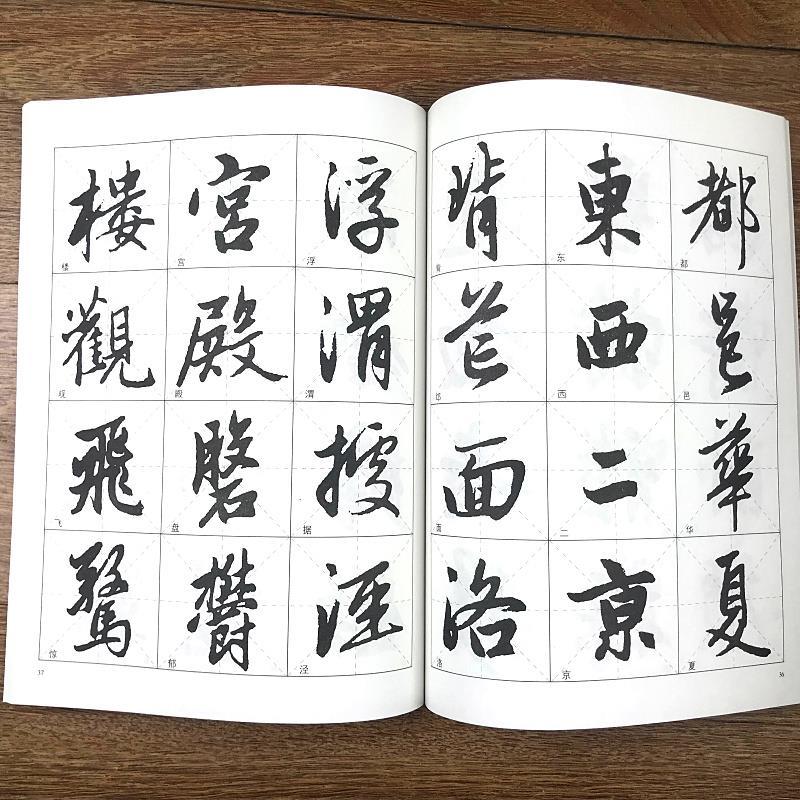 都邑華夏
都 邑 华 夏
東西二京
东 西 二 京
背芒面洛
背 邙 面 洛
36
浮渭據涇
浮 渭 据 泾
宮殿磐鬱
宫 殿 盘 郁
樓觀飛驚
楼 观 飞 惊
37